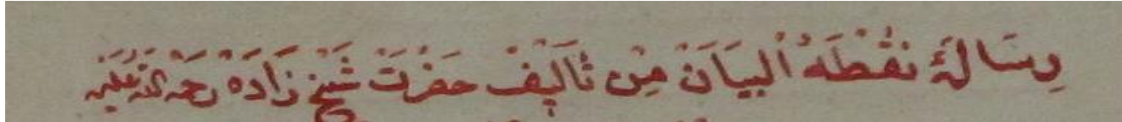 رِسَالَۀ نُقْطَهُ الْبَيَانْ مِنْ تَأَلِيفْ حَضْرَتْ شَيْخْ زَادَهْ رَحْمَةُ اللّٰه عَلَيْهِ